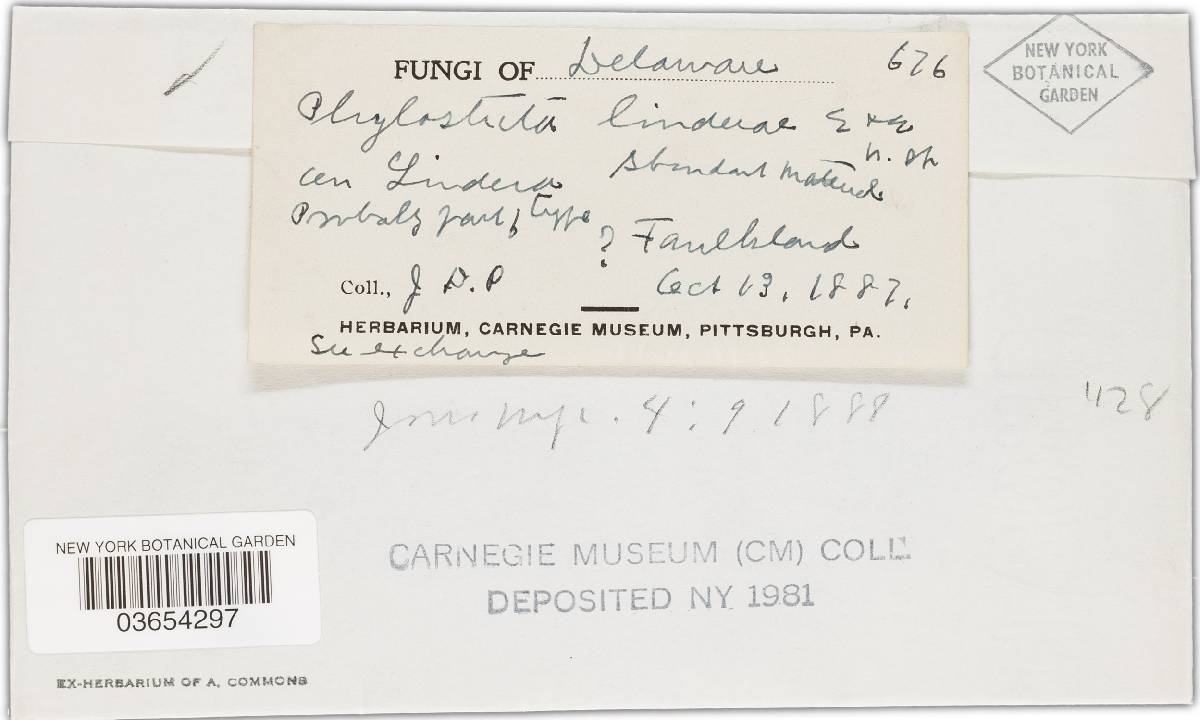 FUNGI OF Delaware 676
NEW YORK
BOTANICAL
GARDEN
Phylosticta linderae E & E
n. sp
on Lindera Abundant material
Probably part of type ? Faulkland
Coll., J D. P Oct 13, 1887.
HERBARIUM, CARNEGIE MUSEUM, PITTSBURGH, PA.
See exchange
Jour. Myc. 4: 9 1888
428
CARNEGIE MUSEUM (CM) COLL.
DEPOSITED NY 1981
NEW YORK BOTANICAL GARDEN
03654297
EX-HERBARIUM OF A. COMMONS